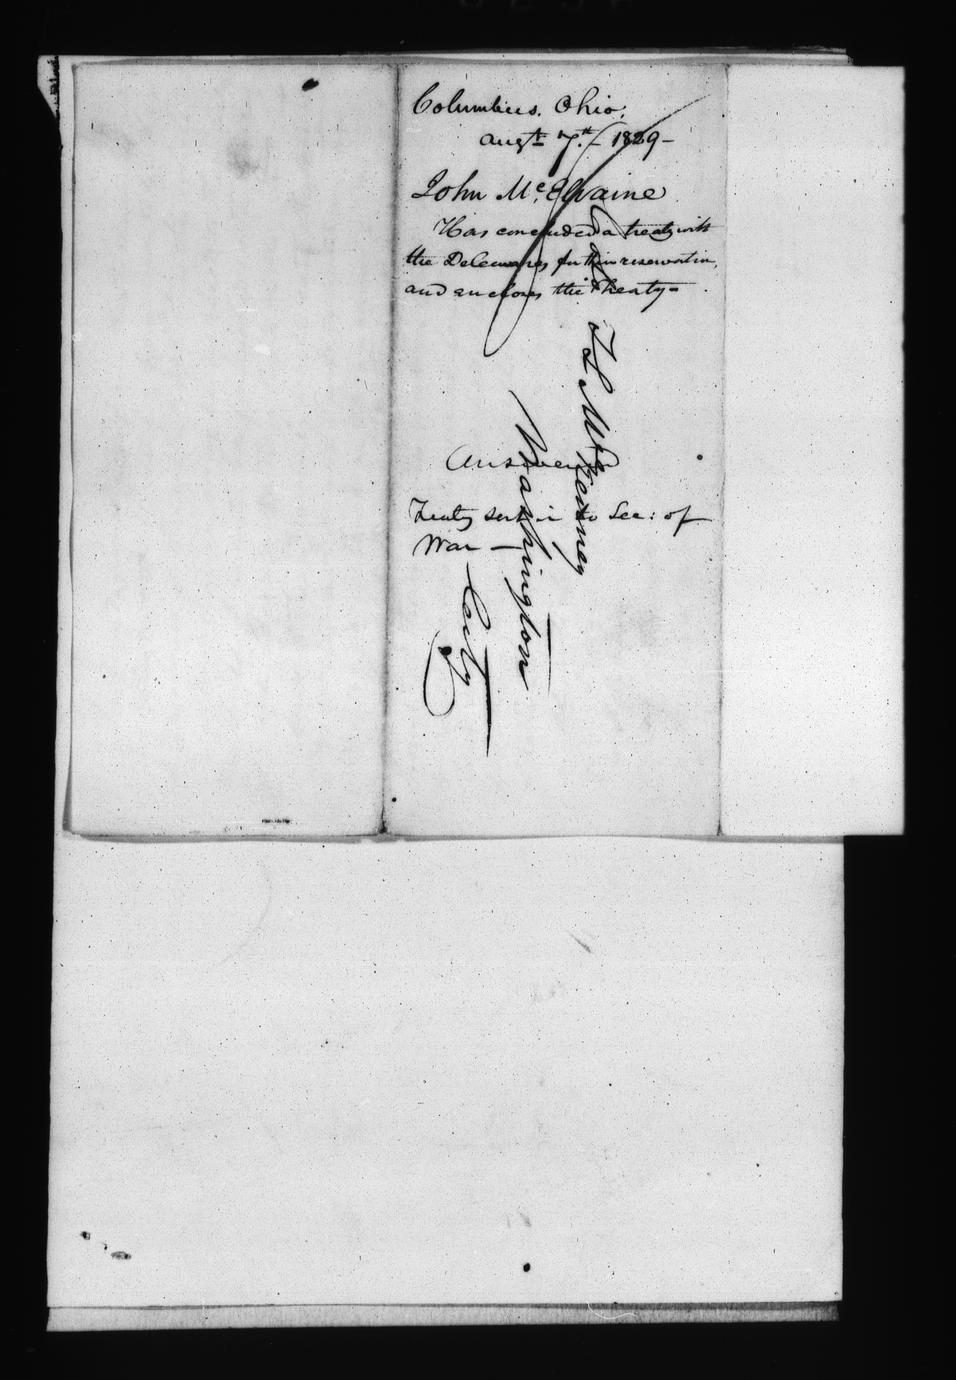 Columbus, Ohio,
Augt. 7th 1829 -
John McElvaine
Has concluded a treaty with
the Delewares for their reservation,
and encloses the treaty -
Answered
Treaty sent in to Sec: of
War -
T L McKenney
Washington
City